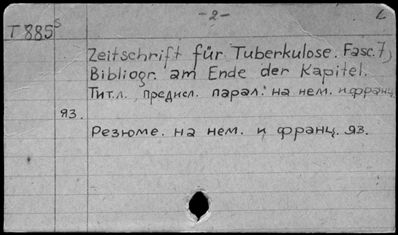 -2-
T885s
Zeitschrift für Tuberkulose. Fasc. 7)
Bibliogr. am Ende der Kapitel.
Тит.л., предисл. парал. на нем. и франц.
яз.
Резюме. на нем. и франц. яз.